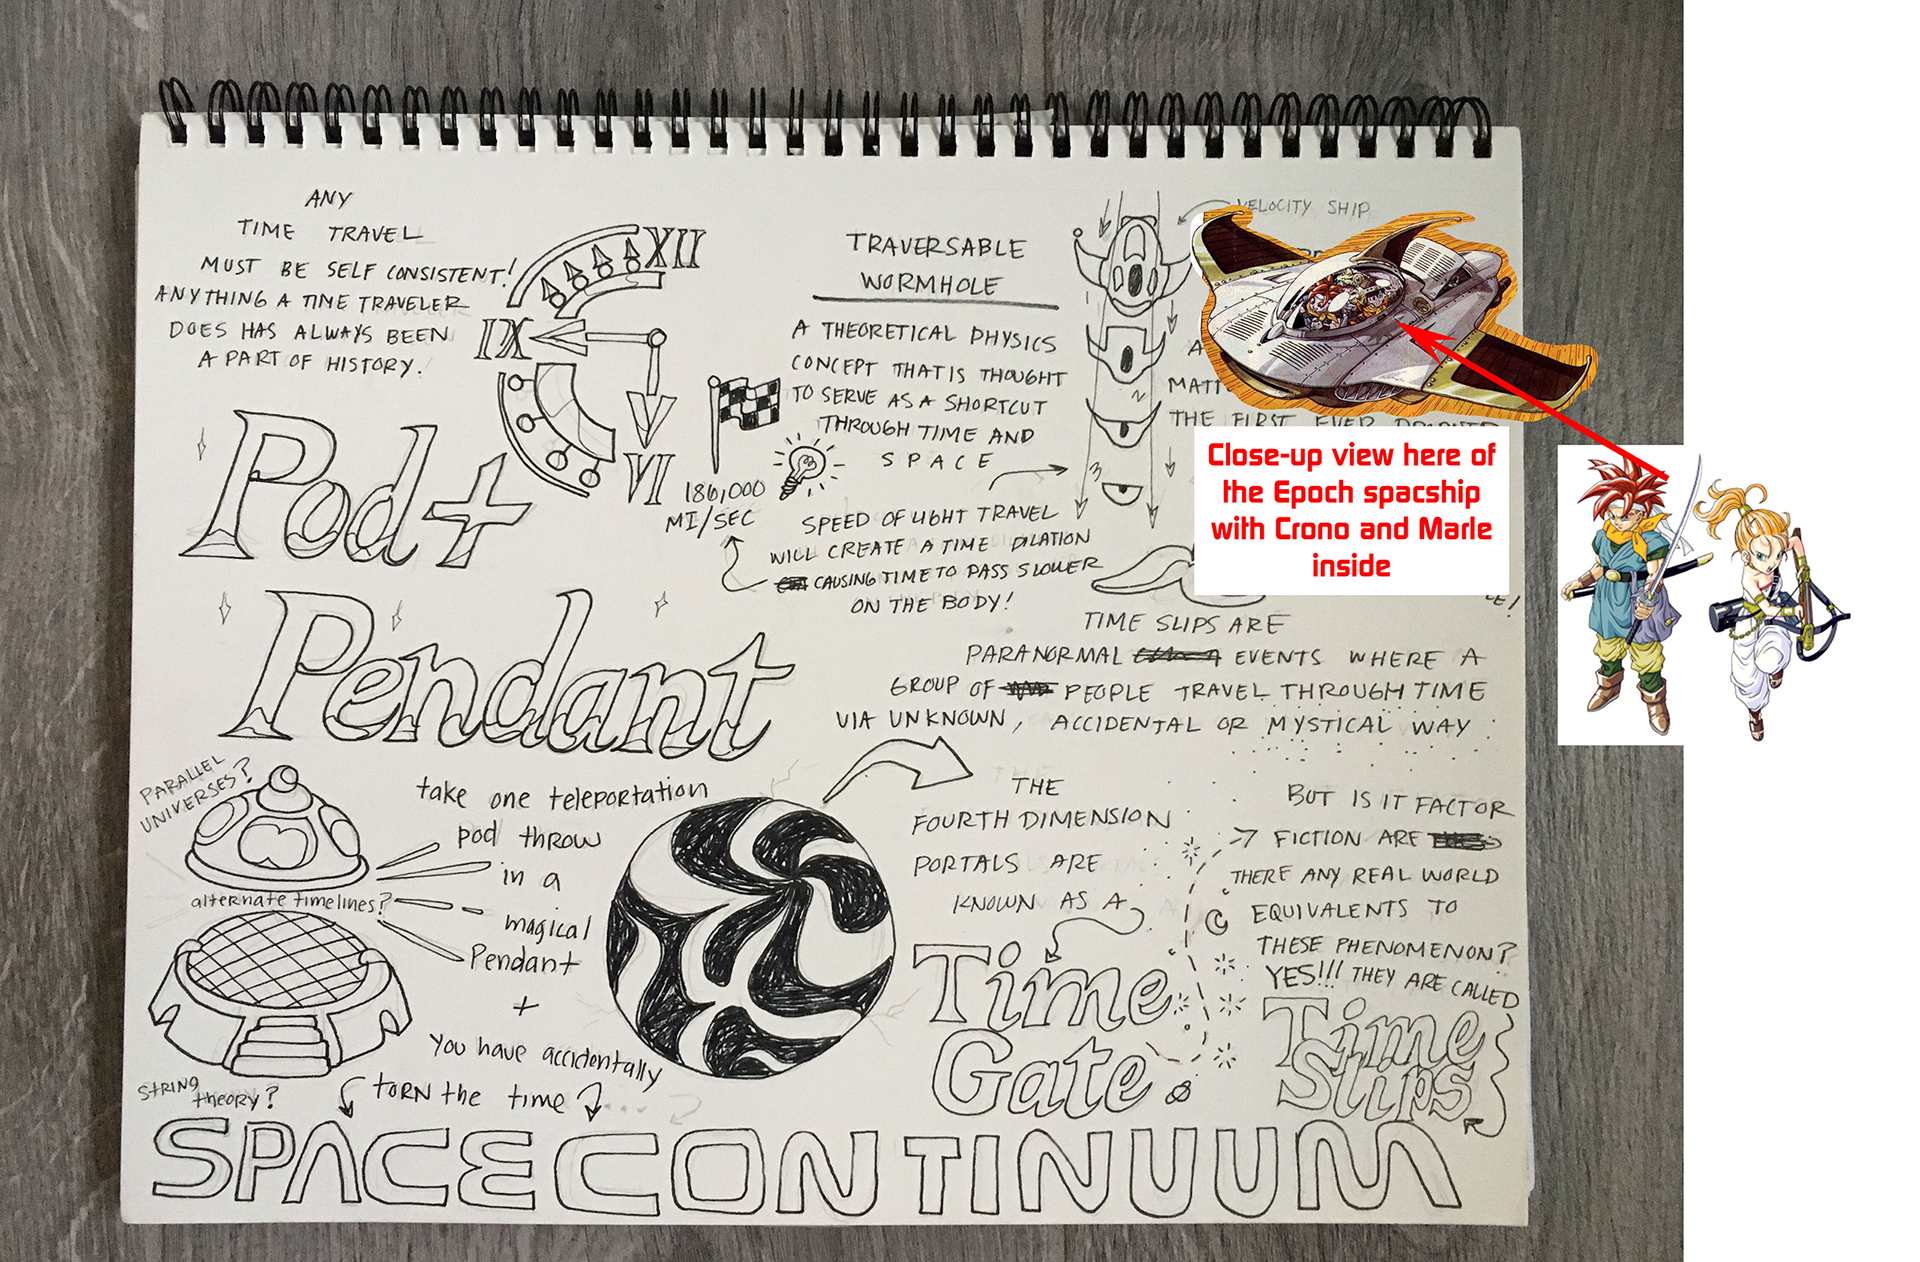 ANY
TIME TRAVEL
MUST BE SELF CONSISTENT!
ANYTHING A TIME TRAVELER
DOES HAS ALWAYS BEEN
A PART OF HISTORY.
XII
IX
VI
Pod +
Pendant
180,000
MI/SEC
TRAVERSABLE
WORMHOLE
A THEORETICAL PHYSICS
CONCEPT THAT IS THOUGHT
TO SERVE AS A SHORTCUT
THROUGH TIME AND
SPACE
SPEED OF LIGHT TRAVEL
WILL CREATE A TIME DILATION
CAUSING TIME TO PASS SLOWER
ON THE BODY!
VELOCITY SHIP
MATT
THE FIRST EVER
Close-up view here of
the Epoch spacship
with Crono and Marle
inside
TIME SLIPS ARE
PARANORMAL EVENTS WHERE A
GROUP OF PEOPLE TRAVEL THROUGH TIME
VIA UNKNOWN, ACCIDENTAL OR MYSTICAL WAY
PARALLEL
UNIVERSES?
alternate timelines?
STRING
theory?
take one teleportation
pod throw
in a
magical
Pendant
+
You have accidentally
TORN the time
SPACE CONTINUUM
THE
FOURTH DIMENSION
PORTALS ARE
KNOWN AS A
Time
Gate
BUT IS IT FACT OR
FICTION ARE
THERE ANY REAL WORLD
EQUIVALENTS TO
THESE PHENOMENON?
YES!!! THEY ARE CALLED
Time
Slips